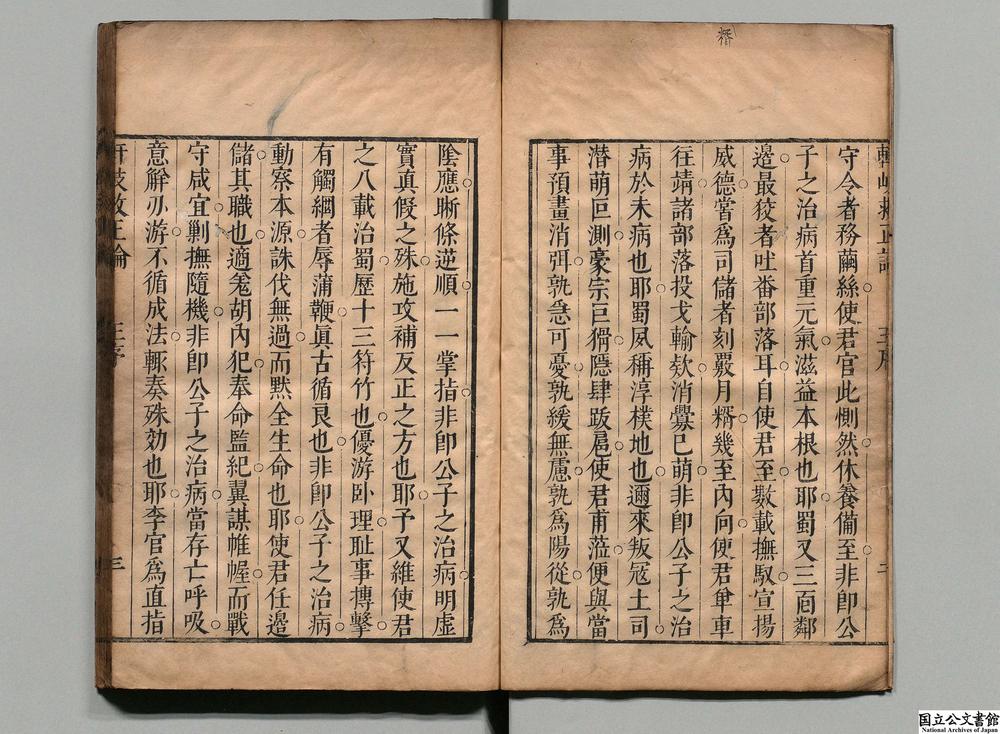 糈
軒岐救正論 王序 二
守令者務繭絲使君官此惻然休養備至非卽公
子之治病首重元氣滋益本根也耶蜀又三面鄰
邊最狡者吐番部落耳自使君至數載撫馭宣揚
威德嘗爲司儲者刻覈月糈幾至內向使君單車
往靖諸部落投戈輸欵消釁已萌非卽公子之治
病於未病也耶蜀夙稱淳樸地也邇來叛寇土司
潛萌叵測豪宗巨猾隱肆跋扈使君甫蒞便與當
事預畫消弭孰急可憂孰緩無慮孰爲陽從孰爲
陰應晰條逆順一一掌指非卽公子之治病明虛
實真假之殊施攻補反正之方也耶予又維使君
之八載治蜀歷十三符竹也優游卧理耻事摶擊
有觸綱者辱蒲鞭眞古循良也非卽公子之治病
動察本源誅伐無過而黙全生命也耶使君任邊
儲其職也適耄胡內犯奉命監紀翼謀帷幄而戰
守咸宜剿撫隨機非卽公子之治病當存亡呼吸
意解刃游不循成法輒奏殊効也耶李官爲直指
軒岐救正論 王序 三
国立公文書館
National Archives of Japan